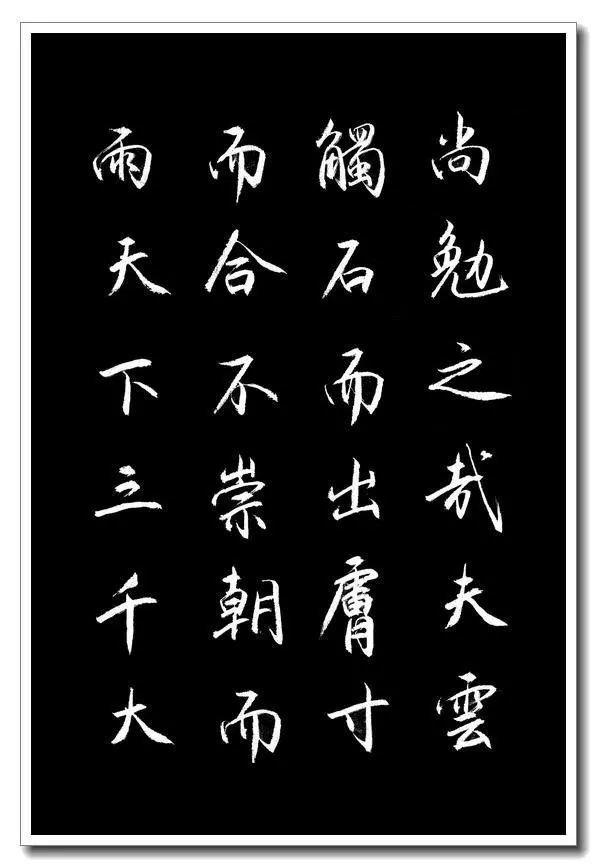 尚勉之哉夫雲
觸石而出膚寸
而合不崇朝而
雨天下三千大